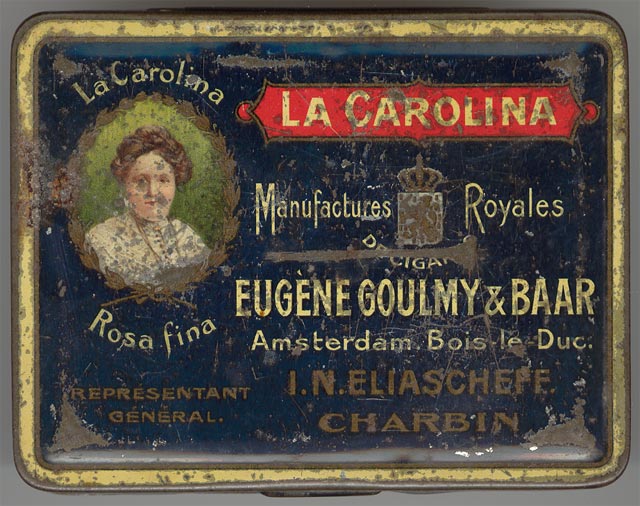 La Carolina
LA CAROLINA
Manufactures Royales
DE CIGAR
EUGÈNE GOULMY & BAAR
Amsterdam. Bois-le-Duc.
Rosa fina
REPRÉSENTANT
GÉNÉRAL.
I.N. ELIASCHEFF
CHARBIN